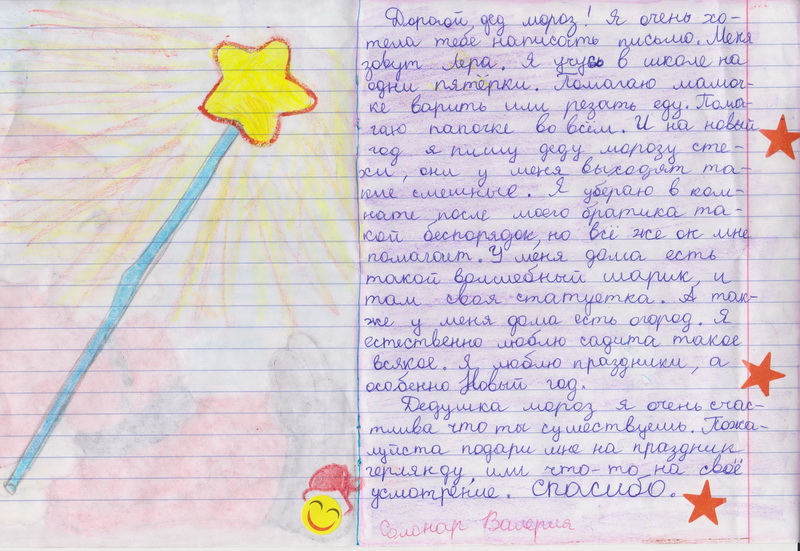 Дорогой, дед мороз! Я очень хо-
тела тебе написать письмо. Меня
зовут Лера. Я учусь в школе на
одни пятёрки. Помагаю мамоч-
ке варить или резать еду. Пома-
гаю папочке во всём. И на новый
год я пишу деду морозу сте-
хи, они у меня выходят та-
кие смешные. Я убераю в ком-
нате после моего братика та-
кой беспорядок, но всё же он мне
помагает. У меня дома есть
такой волшебный шарик, и
там своя статуетка. А так-
же у меня дома есть огород. Я
естественно люблю садита такое
всякое. Я люблю праздники, а
особенно Новый год.
Дедушка мороз я очень счас-
тлива что ты существуешь. Пожа-
луйста подари мне на праздник
герлянду, или что-то на своё
усмотрение. спасибо.
Солонар Валерия